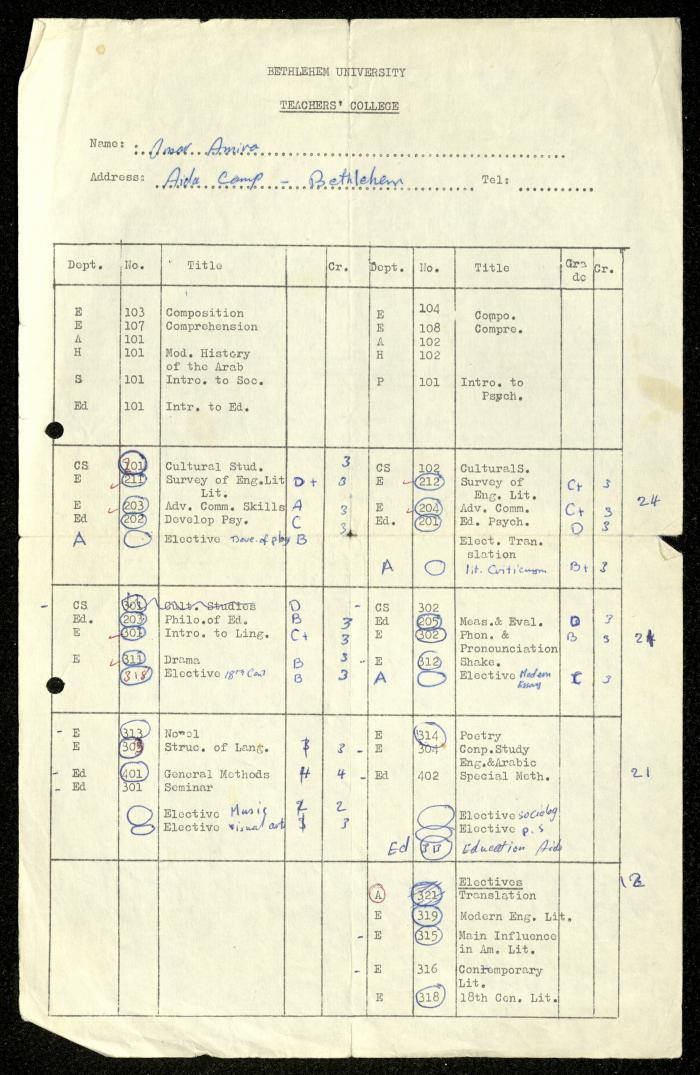 BETHLEHEM UNIVERSITY
TEACHERS' COLLEGE
Name: Omar Amira
Address: Aida Camp - Bethlehem Tel:
Dept. No. Title Cr. Dept. No. Title Gra de Cr.
E 103 Composition E 104 Compo.
E 107 Comprehension E 108 Compre.
A 101 A 102
H 101 Mod. History H 102
of the Arab
S 101 Intro. to Soc. P 101 Intro. to
Psych.
Ed 101 Intr. to Ed.
CS 101 Cultural Stud. 3 CS 102 CulturalS.
E 211 Survey of Eng.Lit D+ 3 E 212 Survey of C+ 3
Lit. Eng. Lit. 24
E 203 Adv. Comm. Skills A 3 E 204 Adv. Comm. C+ 3
Ed 202 Develop Psy. C 3 Ed. 201 Ed. Psych. D 3
A Elective Deve. of play B Elect. Tran.
slation
A lit. Criticism B+ 3
- CS 301 Cult. Studies D - CS 302
Ed. 203 Philo.of Ed. B 3 Ed 205 Meas.& Eval. D 3
E 301 Intro. to Ling. C+ 3 E 302 Phon. & B 3 24
Pronounciation
E 311 Drama B 3 - E 312 Shake.
318 Elective 18th Cent B 3 A Elective Modern Essay C 3
- E 313 Novel E 314 Poetry
E 303 Struc. of Lang. 3 3 - E 304 Conp.Study
Eng.&Arabic
- Ed 401 General Methods 4 4 - Ed 402 Special Meth. 21
- Ed 301 Seminar
Elective Music 2 2 Elective sociolog
Elective Visual art 3 3 Elective p.s
Ed 313 Education Aids
Electives
A 321 Translation
E 319 Modern Eng. Lit.
- E 315 Main Influence
in Am. Lit.
- E 316 Contemporary
Lit.
E 318 18th Cen. Lit.